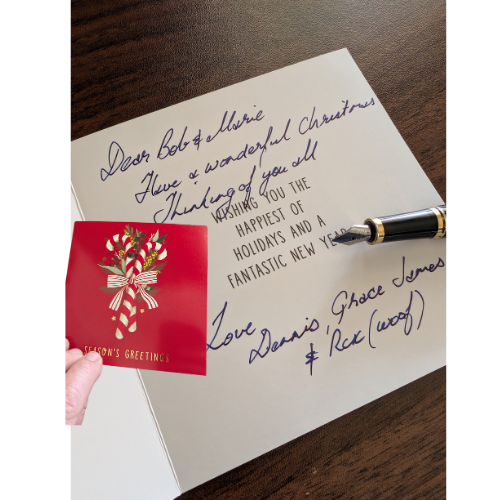 Dear Bob & Marie
Have a wonderful Christmas
Thinking of you all
WISHING YOU THE
HAPPIEST OF
HOLIDAYS AND A
FANTASTIC NEW YEAR
Love
Dennis, Grace James
& Rex (woof)
SEASON'S GREETINGS